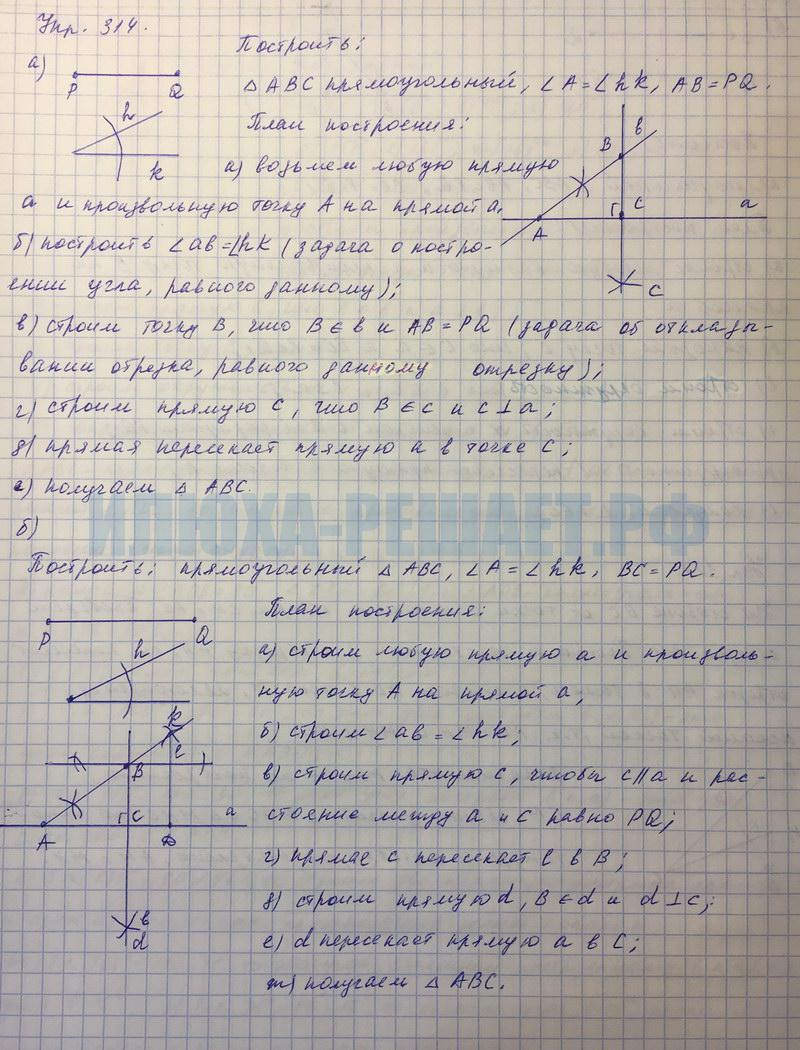 Упр. 314.
а)
P Q
h
k
Построить:
△ ABC прямоугольный, ∠A = ∠hk, AB = PQ.
План построения:
а) возьмем любую прямую
а и произвольную точку A на прямой a,
б) построить ∠ab = ∠hk (задача о постро-
ении угла, равного данному);
в) строим точку B, что B ∈ b и AB = PQ (задача об отклад𝗍ы-
вании отрезка, равного данному отрезку);
г) строим прямую c, что B ∈ c и c ⊥ a;
д) прямая пересекает прямую а в точке C;
е) получаем △ ABC.
B b
A C a
c
ИЛЮХА-РЕШАЕТ.РФ
б)
Построить: прямоугольный △ ABC, ∠A = ∠hk, BC = PQ.
P Q
h
k
План построения:
а) строим любую прямую а и произволь-
ную точку A на прямой a,
б) строим ∠ab = ∠hk;
в) строим прямую c, чтобы c∥a и рас-
стояние между a и c равно PQ;
г) прямая c пересекает b в B;
д) строим прямую d, B ∈ d и d ⊥ c;
е) d пересекает прямую а в C;
ж) получаем △ ABC.
c
B
A C D a
b
d